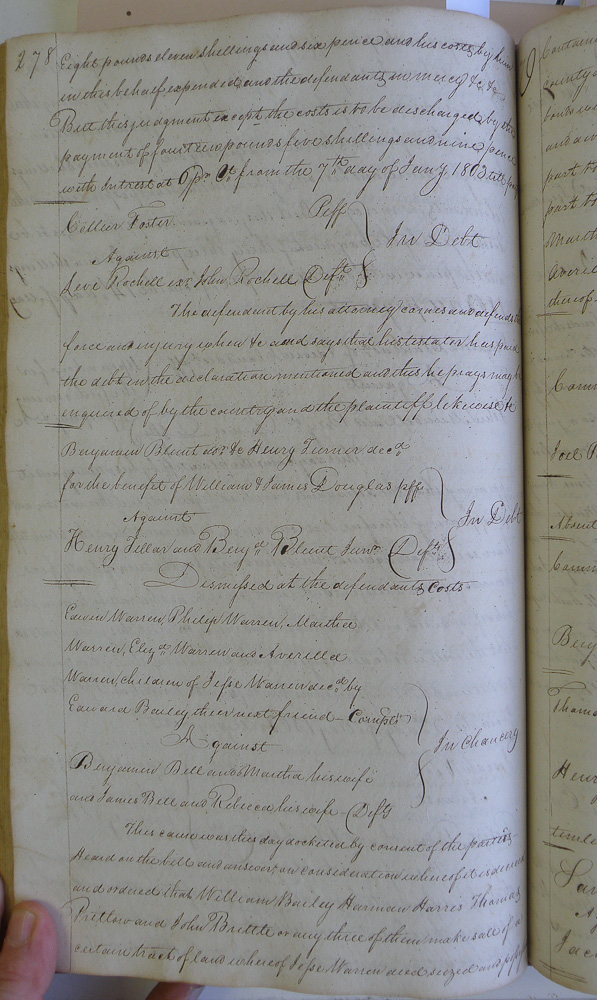 278
Eight pounds eleven shillings and six pence and his costs by him
in this behalf expended and the defendants in mercy &c. &c
But this judgment except the costs is to be discharged by the
payment of fourteen pounds five shillings and nine pence
with Interest at 6 pr. Ct. from the 7th day of Jany. 1803 till
Collier Foster. Plff
Against
In Debt
Levi Rochell exr John Rochell Deft
The defendant by his attorney comes and defends the
force and injury when &c and says that his testator has paid
the debt in the declaration mentioned and this he prays may be
enquired of by the country and the plaintiff likewise &c
Benjamin Blunt &c Henry Turner decd
for the benefit of William & James Douglas plff
Against
In Debt
Henry Tillar and Benj. Blunt Junr. Defts
Dismissed at the defendants Costs
Warren, Philip Warren, Martha
Warren, Eliza Warren and Averilla
Warren, children of Jesse Warren decd by
Edward Bailey their next friend - Complts
Against
In Chancery
Benjamin Bell and Martha his wife
and James Bell and Rebecca his wife Defts
This cause was this day docketed by consent of the parties
Heard on the bill and answer on consideration whereof it is decreed
and ordered that William Bailey Harman Harris Thomas
Pretlow and John Brittle or any three of them make sale of a
certain tract of land whereof Jesse Warren died seized and